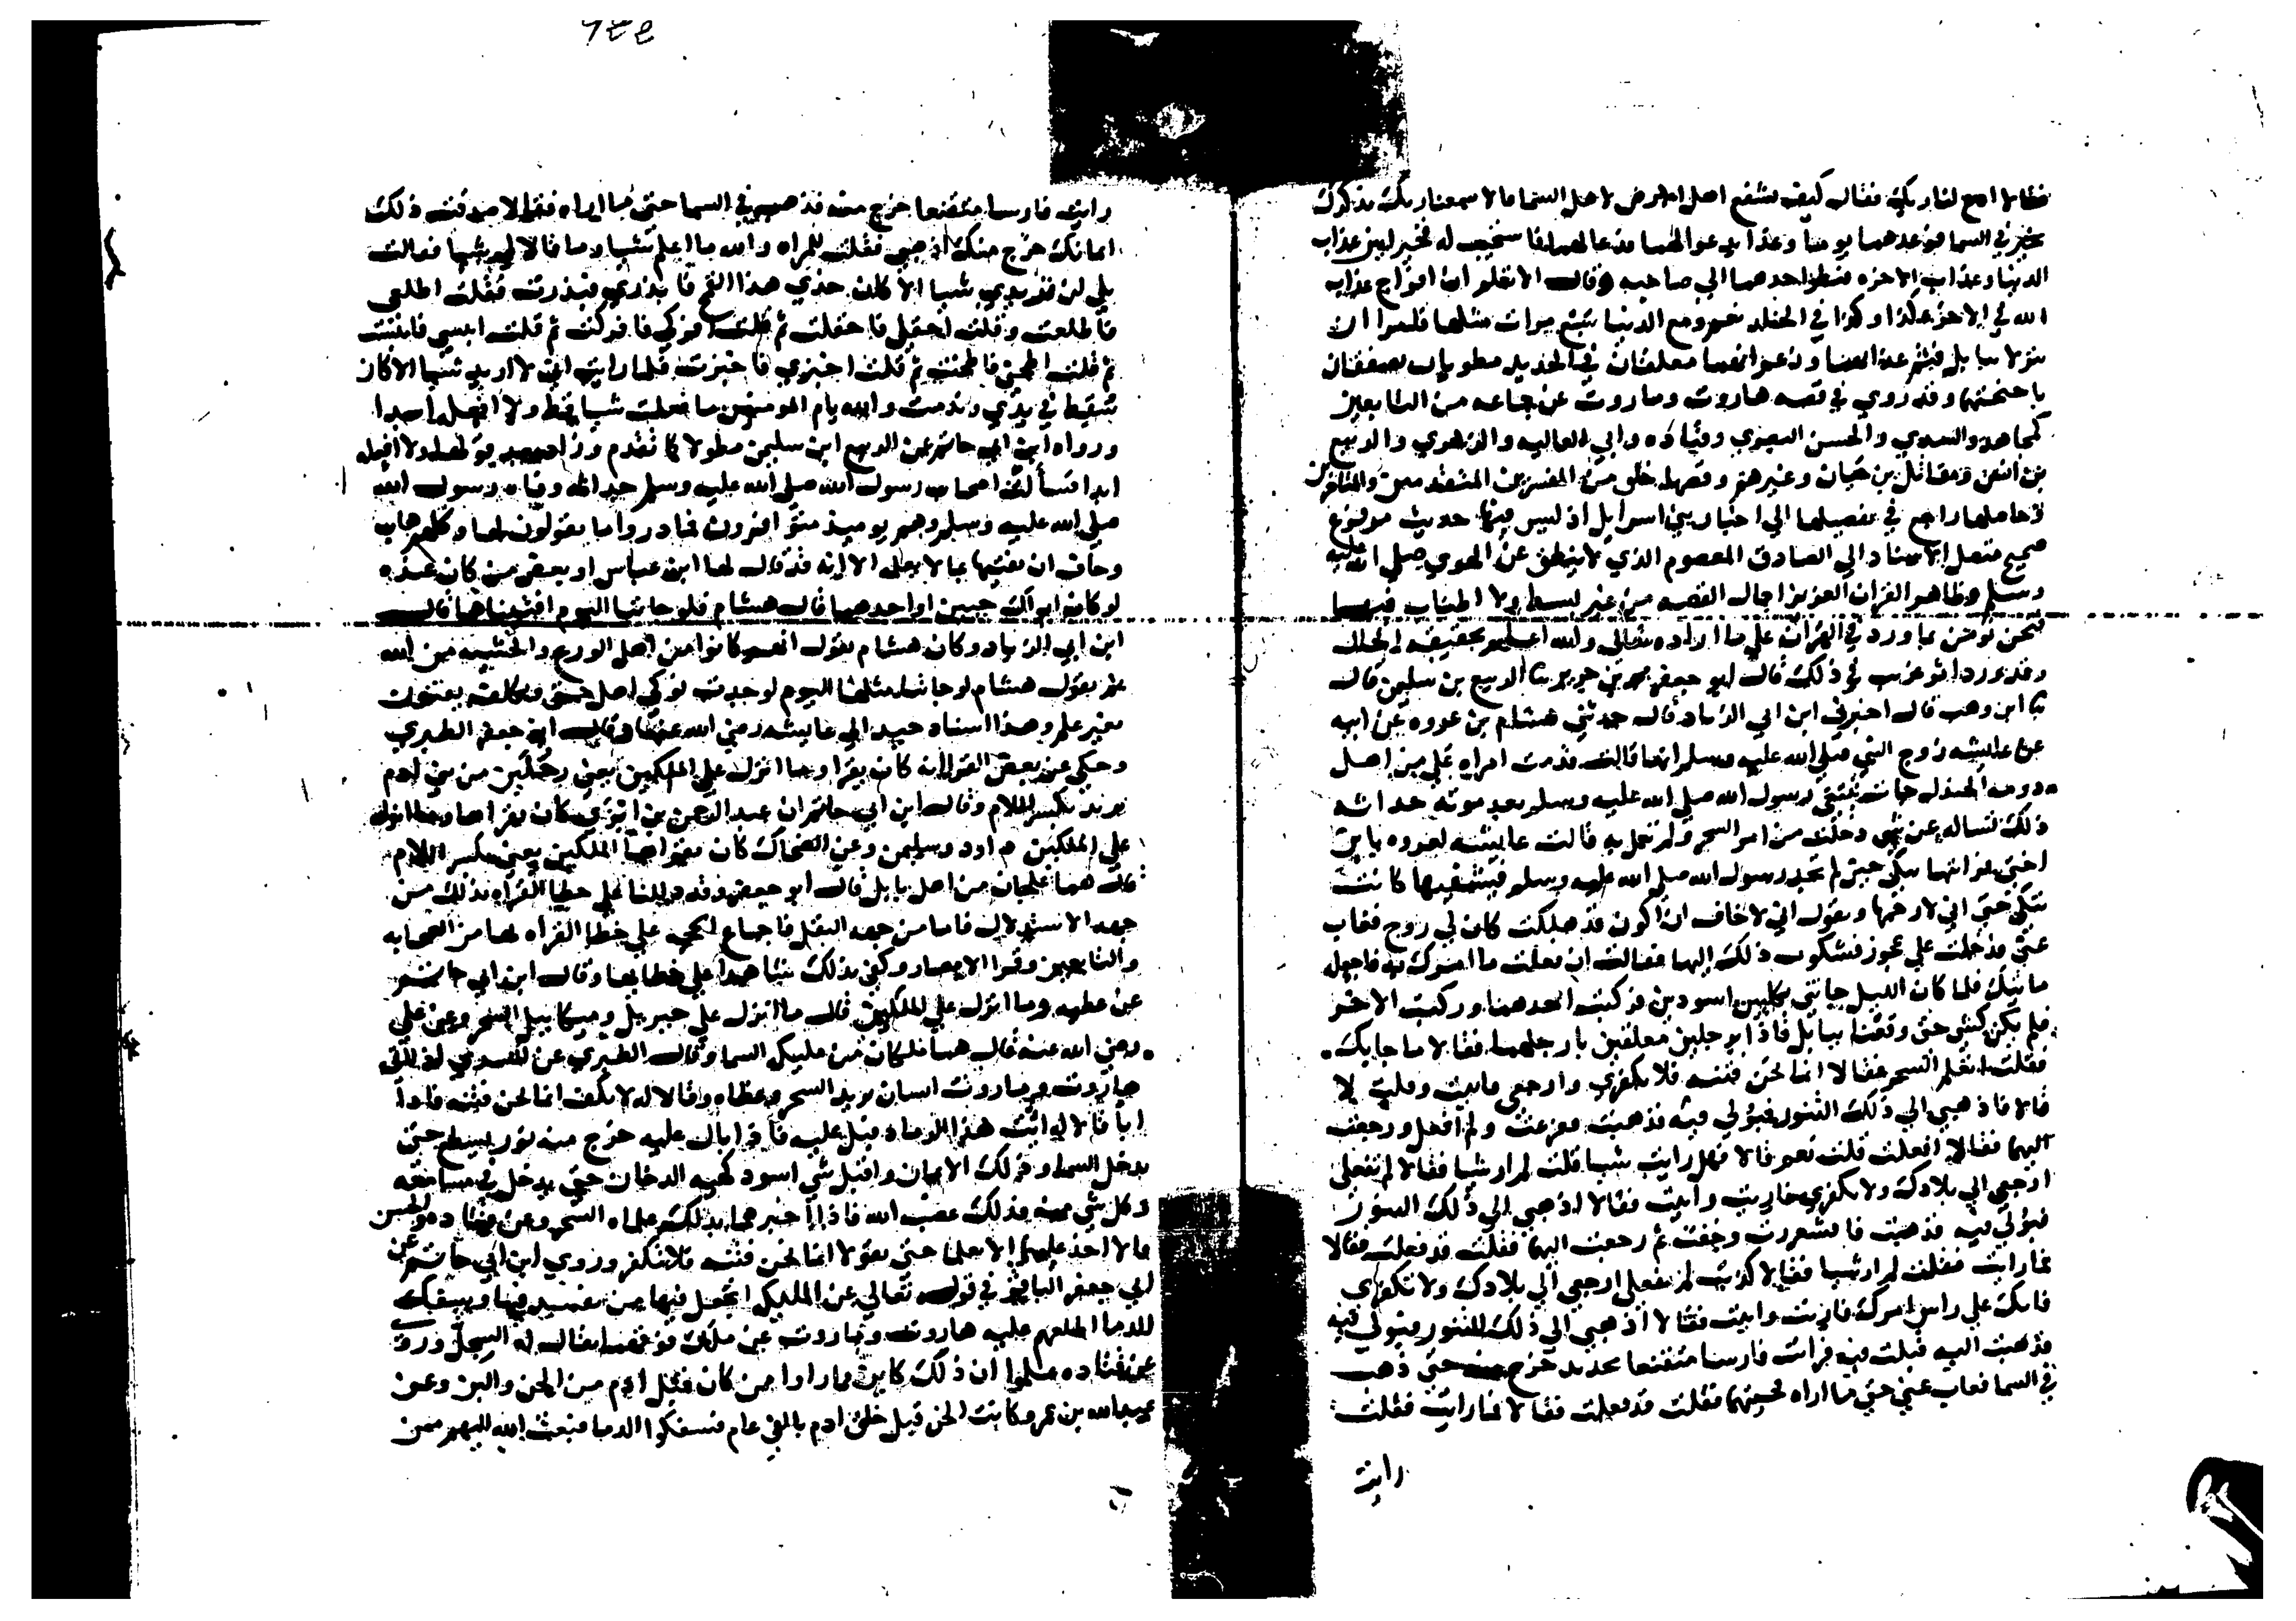 فقالا ادع لنا ربك فقال كيف يشفع اهل الارض لاهل السما قالا سمعنا ربك يذكرك
بخير في السما فوعدهما يوما وغدا يدعو لهما فدعا لهما فاستجيب له فخيرا بين عذاب
الدنيا وعذاب الاخره فنظر احدهما الي صاحبه وقال الا تعلم ان افواج عذاب
الله في الاخره كذا وكذا في الخلد نعم ومع الدنيا سبع مرات مثلها فامرا ان
ينزلا ببابل فثم عذابهما وزعم انهما معلقان في الحديد مطويان يصفقان
باجنحتهما وقد روي في قصه هاروت وماروت عن جماعه من التابعين
كمجاهد والسدي والحسن البصري وقتاده وابي العاليه والزهري والربيع
بن انس ومقاتل بن حيان وغيرهم وقصها خلق من المفسرين المتقدمين والمتاخرين
وحاصلها راجع في تفصيلها الي اخبار بني اسرايل اذ ليس فيها حديث مرفوع
صحيح متصل الاسناد الي الصادق المعصوم الذي لا ينطق عن الهوي صلي الله عليه
وسلم وظاهر القران العزيز اجمال القصه من غير بسط ولا اطناب فيها
فنحن نومن بما ورد في القران علي ما اراده تعالي والله اعلم بحقيقه الحال
وقد ورد اثر غريب في ذلك قال ابو جعفر بن جرير ثنا الربيع بن سليمن قال
ثنا ابن وهب قال اخبرني ابن ابي الزناد قال حدثني هشام بن عروه عن ابيه
عن عايشه زوج النبي صلي الله عليه وسلم انها قالت قدمت امراه علي من اهل
دومه الجندل جات تبتغي رسول الله صلي الله عليه وسلم بعد موته حداثه
ذلك تساله عن شي دخلت من امر السحر ولم تعمل به قالت عايشه لعروه يا بن
اختي فرايتها تبكي حين لم تجد رسول الله صلي الله عليه وسلم فيشفيها كانت
تبكي حتي اني لارحمها وتقول اني لاخاف ان اكون قد هلكت كان لي زوج فغاب
عني فدخلت علي عجوز فشكوت ذلك اليها فقالت ان فعلت ما امرك به فاجعله
ياتيك فلما كان الليل جاتني بكلبين اسودين فركبت احدهما وركبت الاخر
فلم يكن كشي حتي وقفنا ببابل فاذا برجلين معلقين بارجلهما فقالا ما جا بك
فقلت نتعلم السحر فقالا انما نحن فتنه فلا تكفري وارجعي فابيت وقلت لا
قالا فاذهبي الي ذلك التنور فبولي فيه فذهبت ففزعت ولم افعل ورجعت
اليهما فقالا افعلت قلت نعم قالا فهل رايت شيا قلت لم ار شيا فقالا لم تفعلي
ارجعي الي بلادك ولا تكفري فاربت وابيت فقالا اذهبي الي ذلك التنور
فبولي فيه فذهبت فاقشعررت وخفت ثم رجعت اليهما فقلت قد فعلت فقالا
فما رايت فقلت لم ار شيا فقالا كذبت لم تفعلي ارجعي الي بلادك ولا تكفري
فانك علي راس امرك فاربت وابيت فقالا اذهبي الي ذلك التنور فبولي فيه
فذهبت اليه فبلت فيه فرايت فارسا متقنعا بحديد خرج مني حتي ذهب
في السما فغاب عني حتي ما اراه فجيتهما فقلت قد فعلت فقالا فما رايت فقلت
رايت
رايت فارسا متقنعا خرج مني فذهب في السما حتي ما اراه فقالا صدقت ذلك
ايمانك خرج منك اذهبي فقلت للمراه والله ما اعلم شيا وما قالا لي شيا فقالت
بلي لن تريدي شيا الا كان خذي هذا القمح فابذري فبذرت فقلت اطلعي
فاطلعت وقلت احقلي فاحقلت ثم قلت افركي فافركت ثم قلت ايبسي فايبست
ثم قلت اطحني فاطحنت ثم قلت اخبزي فاخبزت فلما رايت اني لا اريد شيا الا كان
سقط في يدي وندمت والله يام المومنين ما فعلت شيا قط ولا افعله ابدا
ورواه ابن ابي حاتم عن الربيع ابن سليمن مطولا كما تقدم وزاد بعد قولها ولا افعله
ابدا فسالت اصحاب رسول الله صلي الله عليه وسلم حداثه وفاه رسول الله
صلي الله عليه وسلم وهم يوميذ متوافرون فما دروا ما يقولون لها وكلهم هاب
وخاف ان يفتيها بما لا يعلم الا انه قد قال لها ابن عباس او بعض من كان عنده
لو كان ابواك حيين او احدهما قال هشام فلو جاتنا اليوم افتيناها قال
ابن ابي الزناد وكان هشام يقول انهم كانوا من اهل الورع والخشيه من الله
ثم يقول هشام لو جاتنا مثلها اليوم لوجدت نوكي اهل حمق وتكلف يفتون
بغير علم وهذا اسناد جيد الي عايشه رضي الله عنها وقال ابو جعفر الطبري
وحكي عن بعض القرا انه كان يقرا وما انزل علي الملكين يعني رجلين من بني ادم
يريد بكسر اللام وقال ابن ابي حاتم ان عبد الرحمن بن ابزي كان يقراها وما انزل
علي الملكين داود وسليمن وعن الضحاك كان يقراها الملكين يعني بكسر اللام
قال هما علجان من اهل بابل قال ابو جعفر وقد دللنا علي خطا القراه بذلك من
جهه الاستدلال فاما من جهه النقل فاجماع الحجه علي خطا القراه بها من الصحابه
والتابعين وقرا الامصار وكفي بذلك شاهدا علي خطايها وقال ابن ابي حاتم
عن عطيه وما انزل علي الملكين قال ما انزل علي جبريل وميكاييل السحر وعن علي
رضي الله عنه قال هما ملكان من ملايكه السما وقال الطبري عن السدي اذا اتي
هاروت وماروت انسان يريد السحر وعظاه وقالا له لا تكفر انما نحن فتنه فاذا
ابا قالا له ايت هذا الرماد فبل عليه فاذا بال عليه خرج منه نور يسطع حتي
يدخل السما وذلك الايمان واقبل شي اسود كهيه الدخان حتي يدخل في مسامعه
وكل شي منه فذلك غضب الله فاذا اخبرهما بذلك علماه السحر وعن قتاده والحسن
قالا اخذ عليهما الا يعلما حتي يقولا انما نحن فتنه فلا تكفر وروي ابن ابي حاتم عن
ابي جعفر الباقر في قوله تعالي عن الملايكه اتجعل فيها من يفسد فيها ويسفك
الدما اطلعهم عليه هاروت وماروت عن ملك فوقهما يقال له السجل وروي
عن قتاده علموا ان ذلك كاين بما راوا من كان قبل ادم من الجن والبن وعن
عبد الله بن عمر وكانت الجن قبل خلق ادم بالفي عام فسفكوا الدما فبعث الله اليهم من